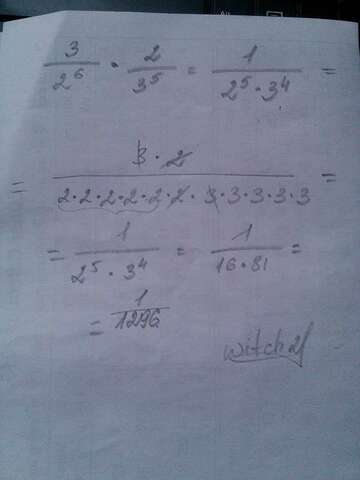 3/2⁶ · 2/3⁵ = 1/(2⁵ · 3⁴) =
= (3 · 2)/(2 · 2 · 2 · 2 · 2 · 2 · 3 · 3 · 3 · 3 · 3) =
= 1/(2⁵ · 3⁴) = 1/(16 · 81) =
= 1/1296
witch21